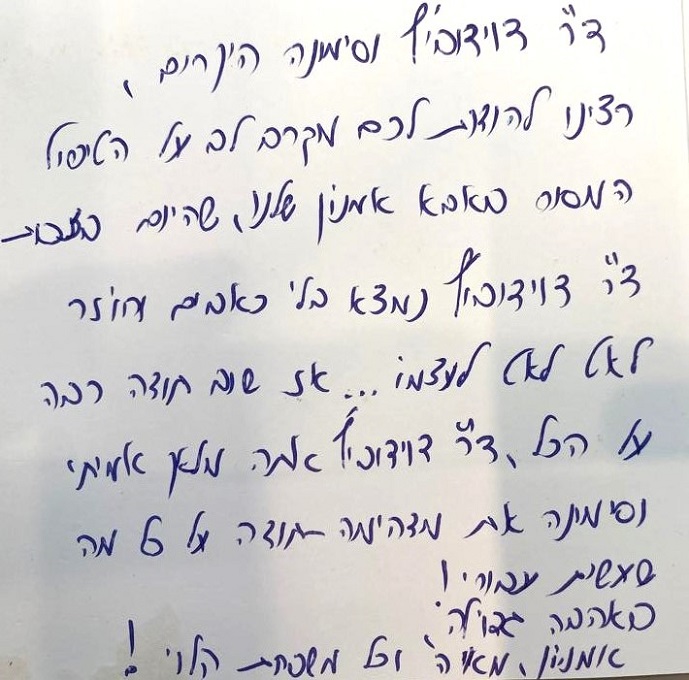 ד"ר דוידוביץ' וסימונה היקרים,
רצינו להודות לכם מקרב לב על הטיפול
המסור באבא אמנון שלנו, שהיום בעזרת
ד"ר דוידוביץ' נמצא בלי כאבים וחוזר
לאט לאט לעצמו... אז שוב תודה רבה
על הכל, ד"ר דוידוביץ' אתה מלאך אמיתי
וסימונה את מדהימה תודה על כל מה
שעשית עבורי!
באהבה גדולה,
אמנון, מאיה וכל משפחת הלוי!